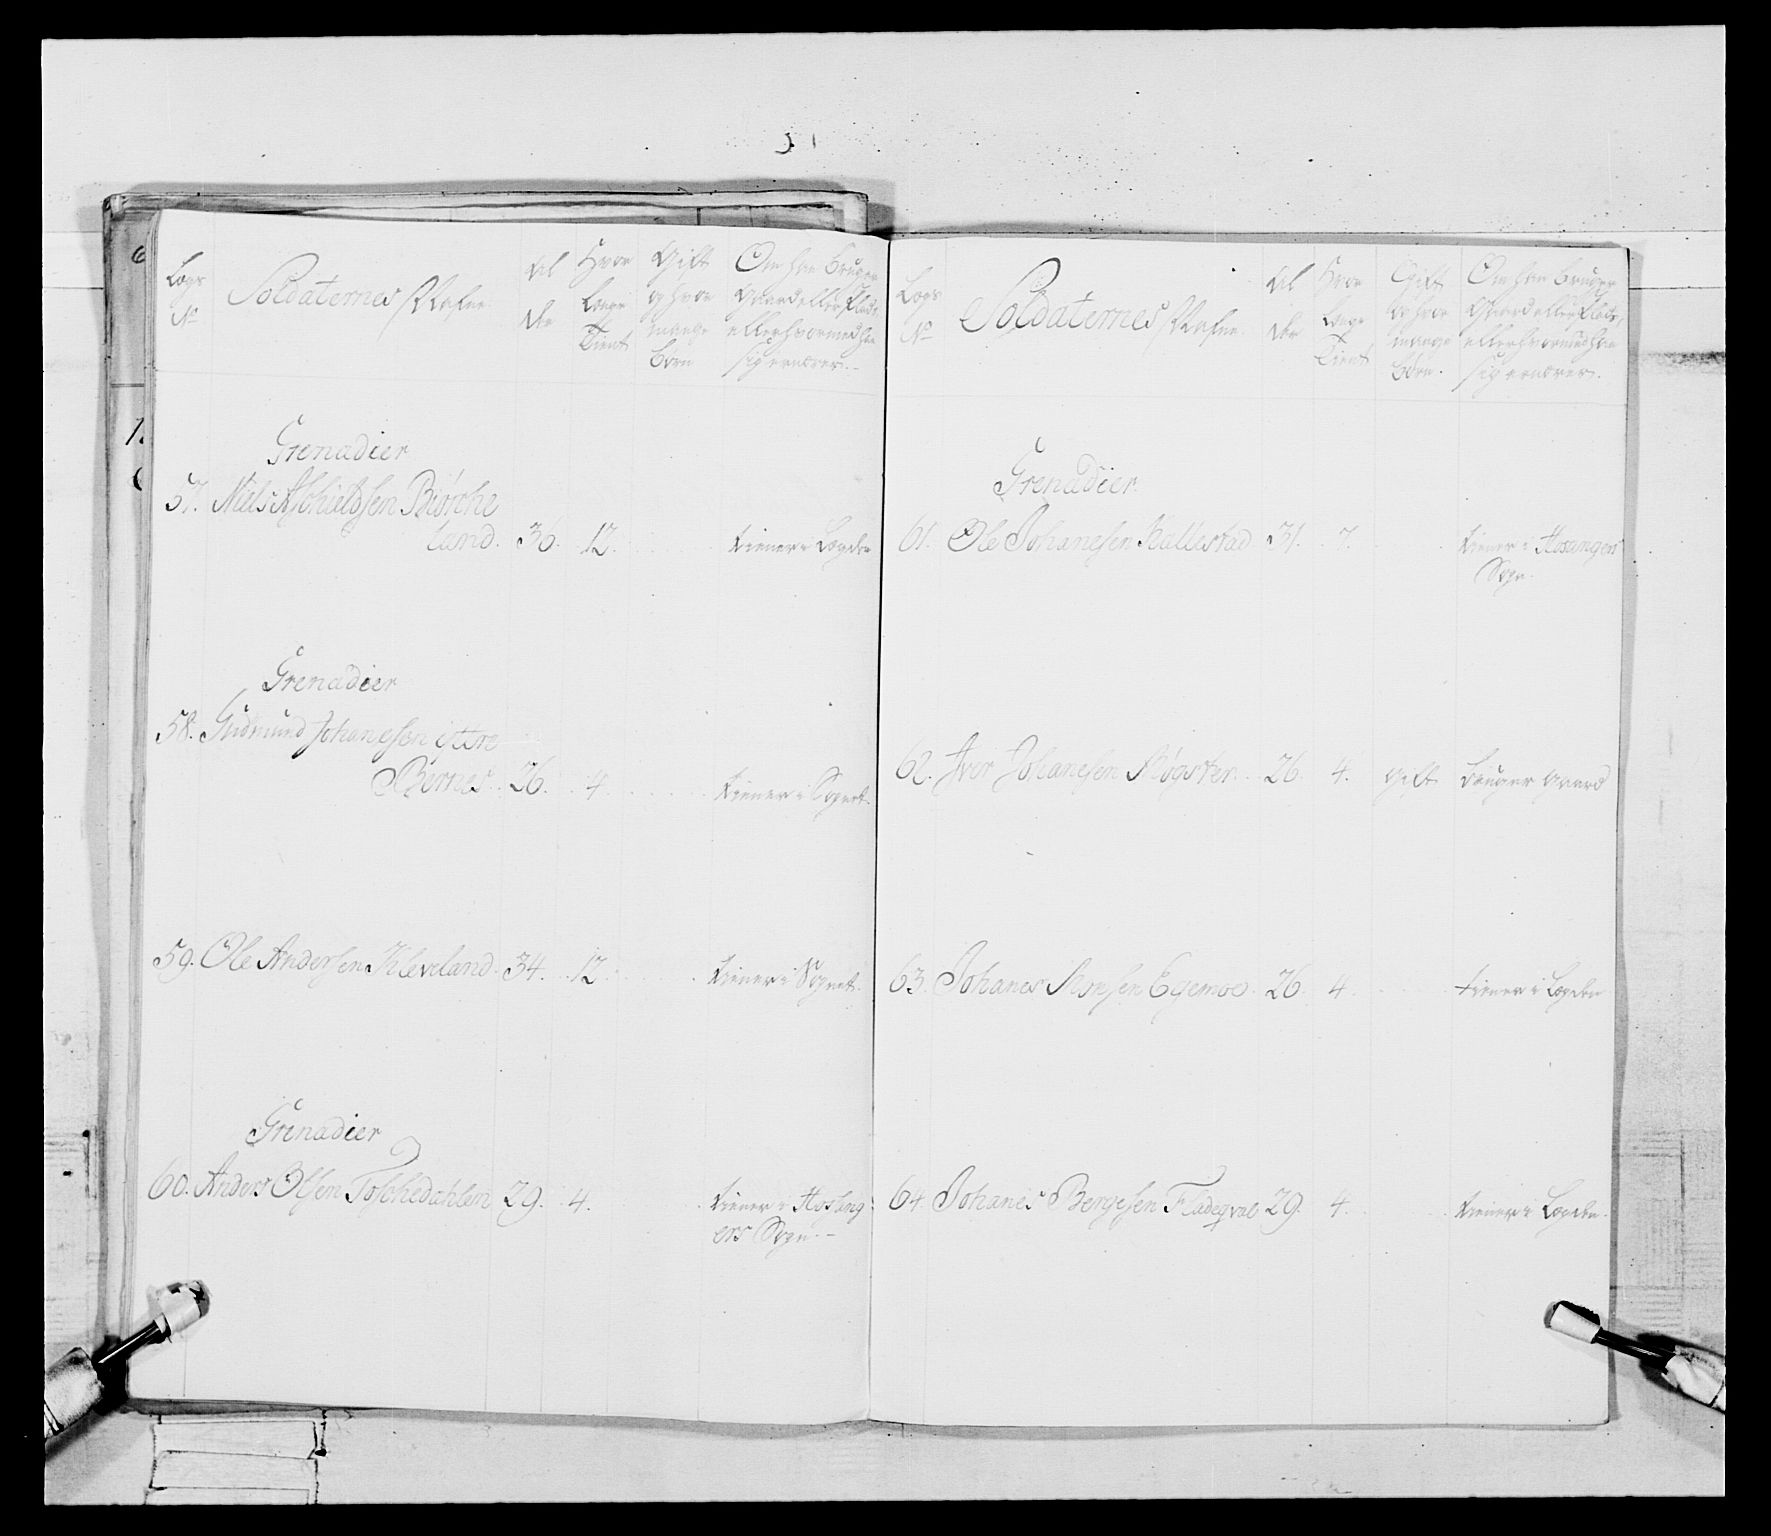 Lægs No
Soldaternes Nafne
Alder
Hvor Længe Tient
Gift og hvor mange Børn
Om han bruger Gaard eller Plads, eller hvormed han sig ernærer.
Grenadier
57. Niels Aschieldsen Biørche
land. 36. 12. tiener i Lægden
Grenadier
58. Gudmund Johanesen ittre
Birnes. 26. 4. tiener i Sognet.
59. Ole Andersen Kleveland. 34. 12. tiener i Sognet.
Grenadier
60. Anders Olsen Toschedahlen 29. 4. tiener i Hosang
ers Sogn.
Lægs No
Soldaternes Nafne
Alder
Hvor Længe Tient
Gift og hvor mange Børn.
Om han bruger Gaard eller Plads, eller hvormed han sig ernærer.
Grenadier.
61. Ole Johanesen Kallestad 31. 7. tiener i Hosanger
Sogn.
62. Iver Johanesen Møgster. 26. 4. gift bruger gaard
63. Johanes Monsen Egemoe. 26. 4. tiener i Lægden
64. Johanes Bergesen Fladeqval 29. 4. tiener i Lægden.